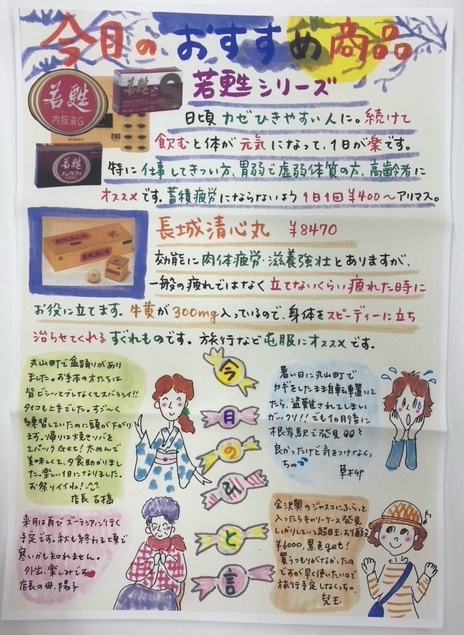 今月のおすすめ商品
若甦シリーズ
若甦
内服液G
若甦
日頃カゼひきやすい人に。続けて
飲むと体が元気になって、1日が楽です。
特に仕事してきつい方、胃弱で虚弱体質の方、高齢者に
オススメです。蓄積疲労にならないよう1日1回¥400〜アリマス。
長城清心丸 ¥8470
効能に肉体疲労・滋養強壮とありますが、
一般の疲れではなく立てないくらい疲れた時に
お役に立てます。牛黄が300mg入っているので、身体をスピーディーに立ち
治らせてくれるすぐれものです。旅行など屯服にオススメです。
今月のひと言
丸山町で盆踊りがあり
ました。お手本の方たちは
皆ビシーとブレなくてスバラシイ!!
タイコも上手でした。すごいく
練習していたのと頭が下がり
ます。帰りは焼きソバを
2パックget!太めんで
美味しくて、夕食助かりまし
た。楽しい1日になりました。
お祭りイイネ!
店長 古橋
暑い日に丸山町で
カギをしたまま自転車置いて
たら、盗難されてしまい
ガックリ!!でも1か月後に
根岸駅で発見
良かったけど気をつけなくっ
ちゃ
草柳
来月は真びズーラシアに行く
予定です。秋も終わると頃で
寒いかも知れません。
外出、楽しみです
店長の母、陽子
金沢奥のジャスコにふらっと
入ったらキャリーケース発見
しっかりしていて超目玉、お値段
¥6000、黒色get!
買うつもりがなかったの
ですが早く使いたいので
旅行予定しなくっちゃ。
兒玉